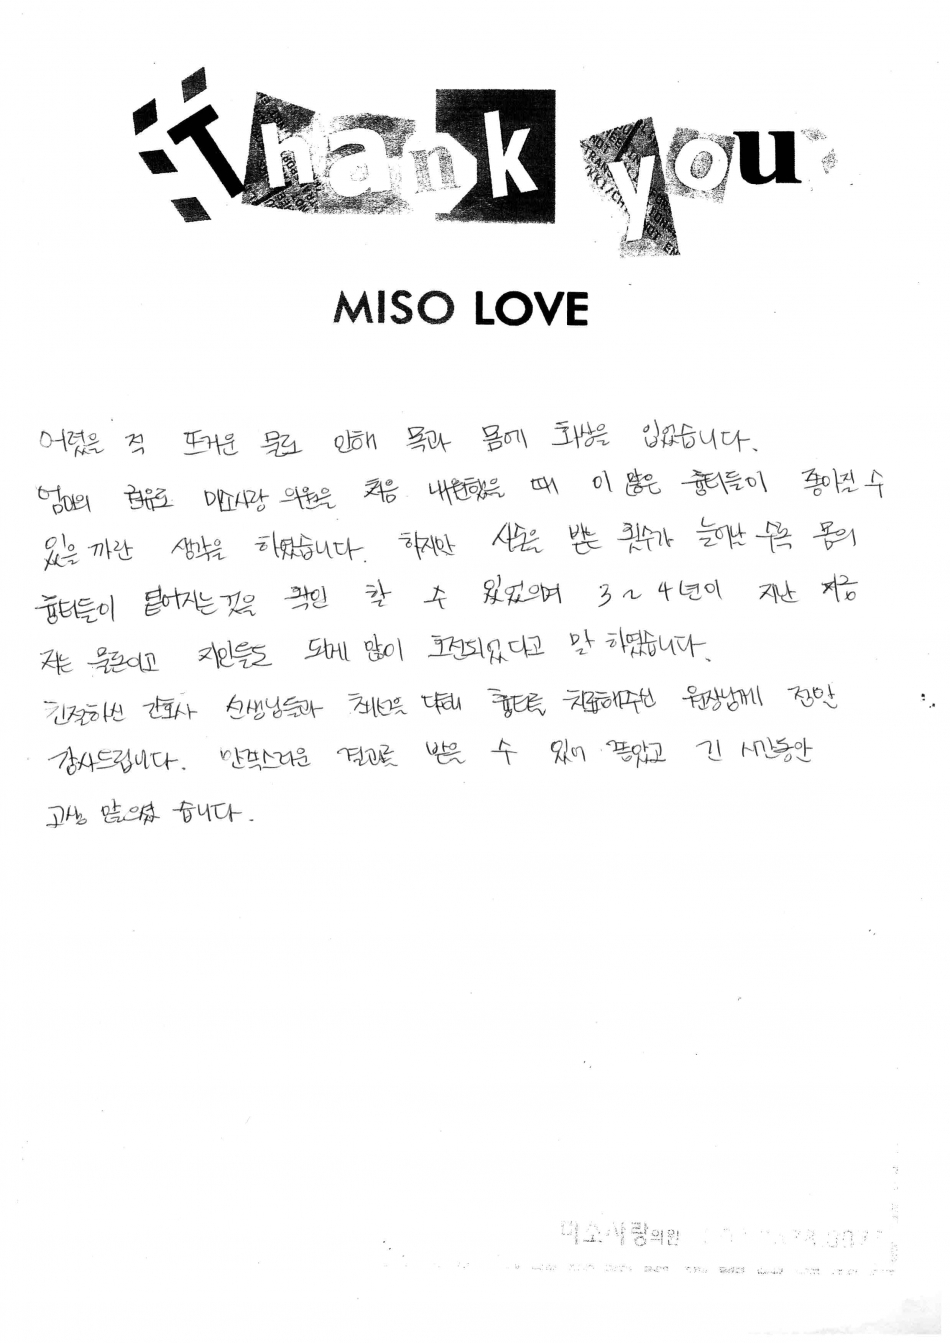 Thank you
MISO LOVE
어렸을 적 뜨거운 물로 인해 목과 몸에 화상을 입었습니다.
엄마의 권유로 미소사랑 의원을 처음 내원했을 때 이 많은 흉터들이 좋아질 수
있을 까란 생각을 하였습니다. 하지만 시술을 받는 횟수가 늘어난 수록 몸의
흉터들이 옅어지는 것을 확인 할 수 있었으며 3~4년이 지난 지금
저는 물론이고 지인들도 되게 많이 호전되었다고 말 하였습니다.
친절하신 간호사 선생님들과 최선을 다해 흉터를 치료해주신 원장님께 전말
감사드립니다. 만족스러운 결과를 받을 수 있어 좋았고 긴 시간동안
고생 많으셨 습니다.
미소사랑의원